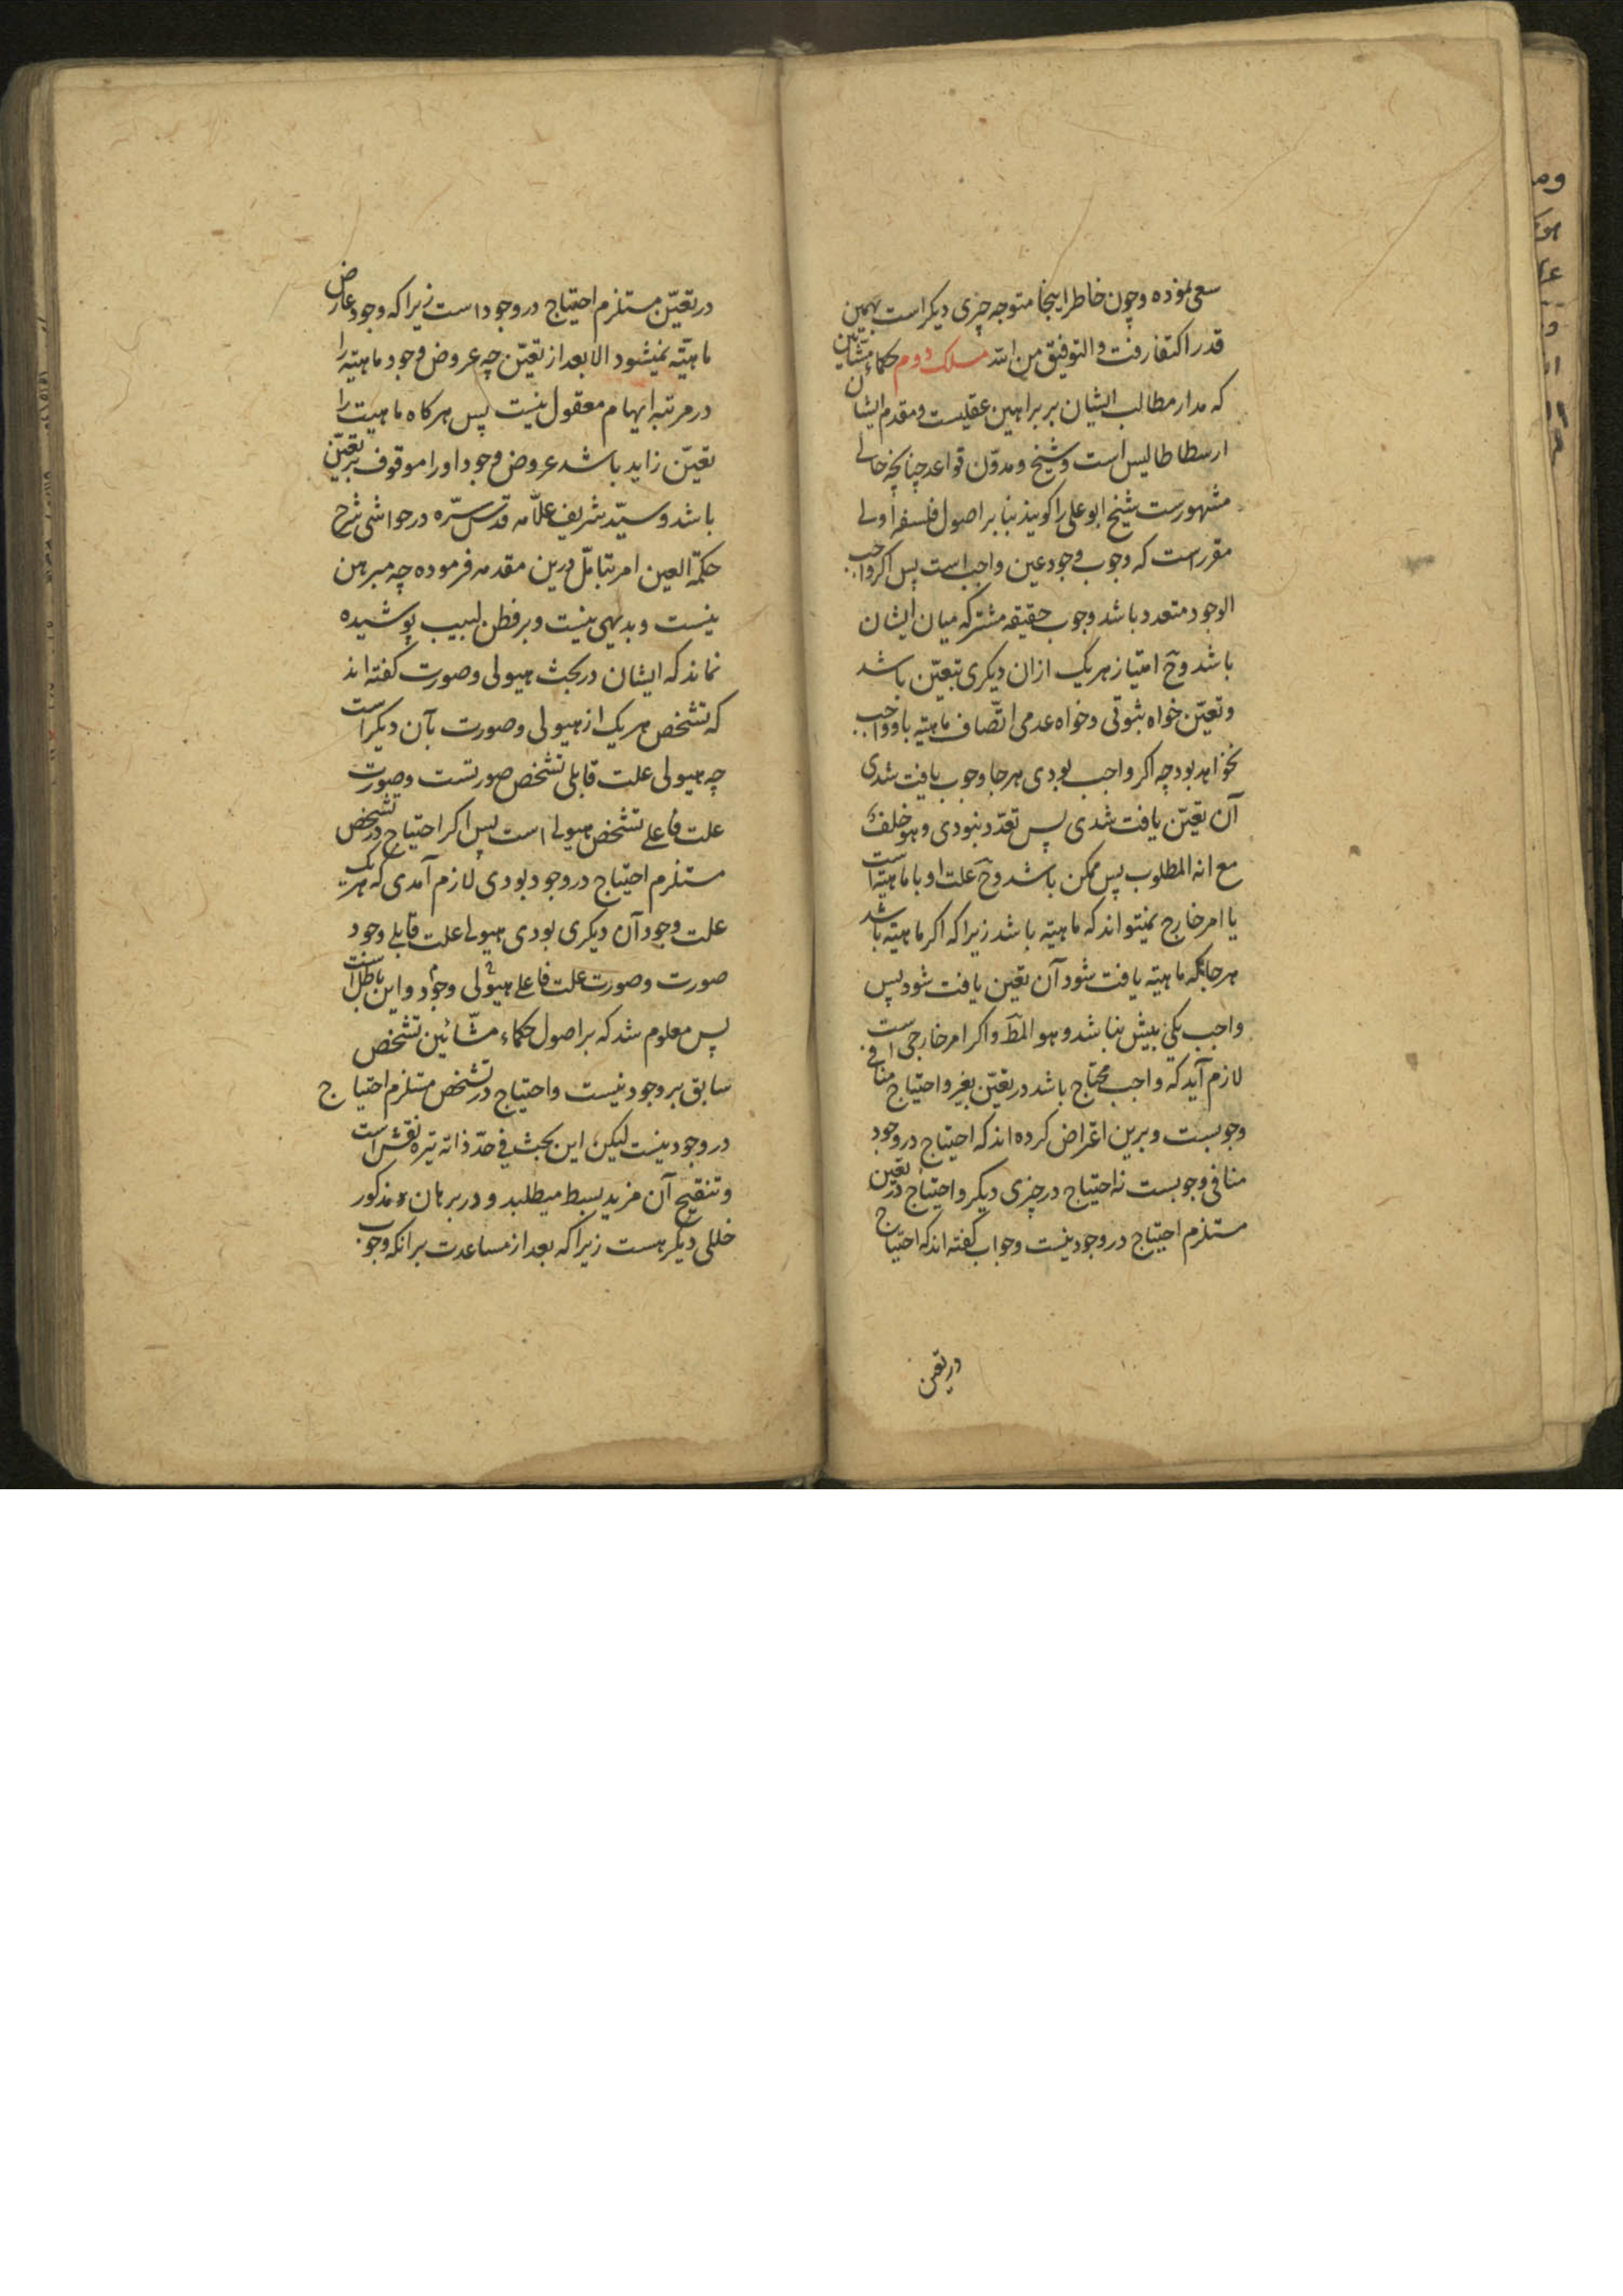 سعی نموده وچون خاطر اینجا متوجه چیزی دیکر است بهمین
قدر اکتفا رفت والتوفیق من الله مسلک دوم حکماء مشّائین
که مدار مطالب ایشان بر براهین عقلیست ومقدم ایشان
ارسطاطالیس است وشیخ ومدوّن قواعد چنانچه حالی
مشهورست شیخ ابو علی را کویند بنا بر اصول فلسفۀ اولی
مقرر است که وجوب وجود عین واجب است پس اکر واجب
الوجود متعدد باشد وجوب حقیقه مشترکه میان ایشان
باشد وح امتیاز هر یک از ان دیکری بتعیّن باشد
وتعیّن خواه ثبوتی وخواه عدمی اتّصاف ماهیّه باو واجب
نخواهد بود چه اکر واجب بودی هرجا وجوب یافت شدی
آن تعیّن یافت شدی پس تعدّد نبودی وهو خلف
مع انه المطلوب پس ممکن باشد وح علت او یا ماهیّه است
یا امر خارج نمیتواند که ماهیّه باشد زیرا که اکر ماهیّه باشد
هرجا که ماهیّه یافت شود آن تعین یافت شود پس
واجب یکی بیش نباشد وهو المط واکر امر خارجی است
لازم آید که واجب محتاج باشد در تعیّن بغیر واحتیاج منافی
وجوبست وبرین اعتراض کرده اند که احتیاج در وجود
منافی وجوبست نه احتیاج در چیزی دیکر واحتیاج در تعین
مستلزم احتیاج در وجود نیست وجواب کفته اند که احتیاج
در تعین
در تعیّن مستلزم احتیاج در وجود است زیرا که وجود عارض
ماهیّه نمیشود الا بعد از تعیّن چه عروض وجود ماهیّه را
در مرتبه ابهام معقول نیست پس هرکاه ماهیت را
تعیّن زاید باشد عروض وجود او را موقوف بر تعیّن
باشد وسیّد شریف علّامه قدس سرّه در حواشی شرح
حکمة العین امر بتامّل درین مقدمه فرموده چه مبرهن
نیست وبدیهی نیست وبر فطن لبیب پوشیده
نماند که ایشان در بحث هیولی وصورت کفته اند
که تشخص هر یک از هیولی وصورت بآن دیکر است
چه هیولی علت قابلی تشخص صورتست وصورت
علت فاعلی تشخص هیولی است پس اکر احتیاج در تشخص
مستلزم احتیاج در وجود بودی لازم آمدی که هر یک
علت وجود آن دیکری بودی هیولی علت قابلی وجود
صورت وصورت علت فاعلی هیولی وجود واین باطل است
پس معلوم شد که بر اصول حکماء مشّائین تشخص
سابق بر وجود نیست واحتیاج در تشخص مستلزم احتیاج
در وجود نیست لیکن این بحث فی حدّ ذاته
وتنقیح آن مزید بسط میطلبد ودر برهان مذکور
خللی دیکر هست زیرا که بعد از مساعدت بر انکه وجوب